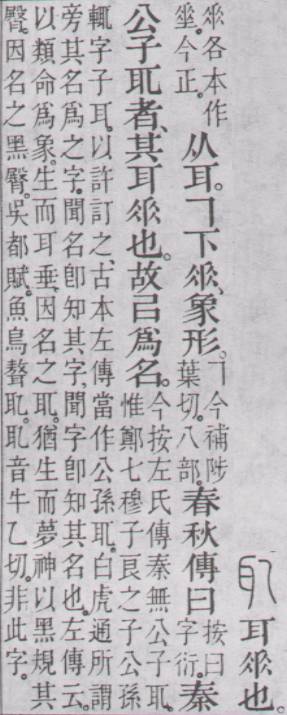 耴 耳𠂹也。
𠂹各本作垂。今正。从耳。㇕下𠂹。象形。㇕今補陟葉切。八部。春秋傳曰按曰字衍。秦
公子耴者、其耳𠂹也。故㠯爲名。今按左氏傳秦無公子耴。惟鄭七穆子良之子公孫
輒字子耳。以許訂之、古本左傳當作公孫耴。白虎通所謂
旁其名爲之字。聞名卽知其字、聞字卽知其名也。左傳云。
以類命爲象。生而耳垂、因名之耴。猶生而夢神以黑規其
臀。因名之黑臀。吳都賦。魚鳥聱耴。耴音牛乙切。非此字。